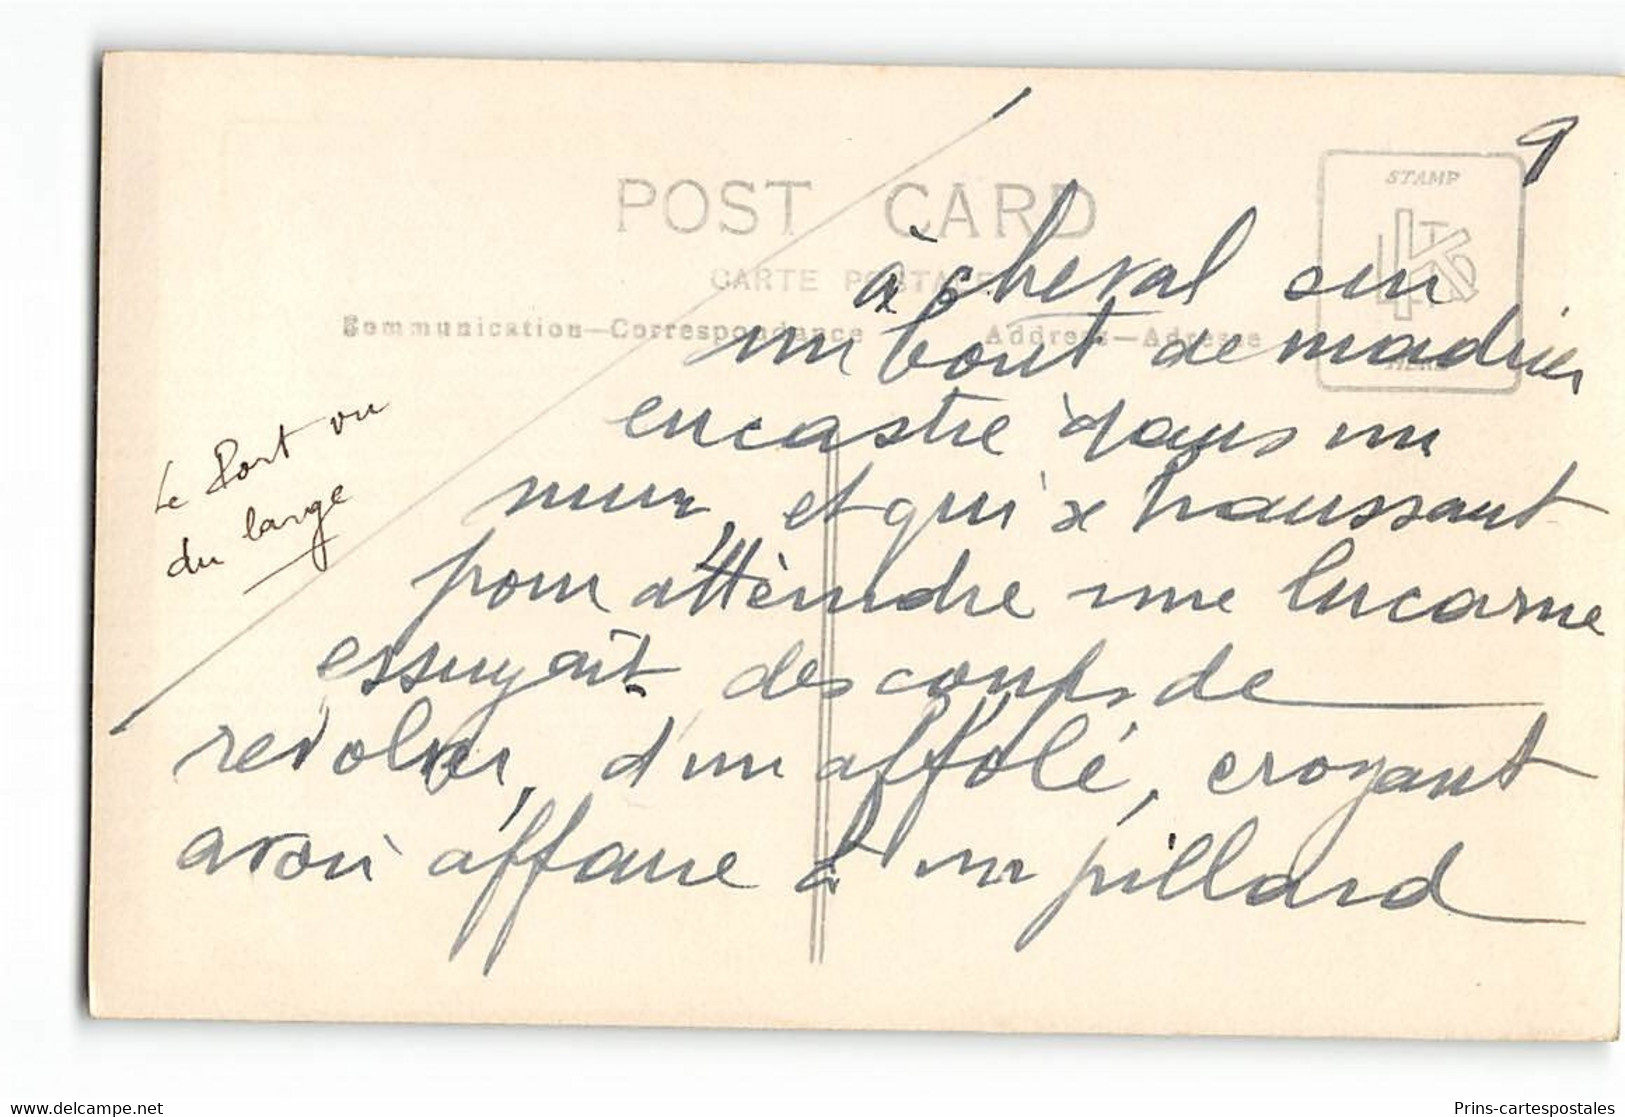 9
POST CARD
STAMP
CARTE POSTALE
à cheval sur
Communication—Correspondance
Address—Adresse
un bout de madrier
HERE
encastré dans un
Le Port vu
du large
mur, et qui se haussant
pour atteindre une lucarne
essuyait des coups de
revolver, d'un affolé, croyant
avoir affaire à un pillard
www.delcampe.net
Prins-cartespostales